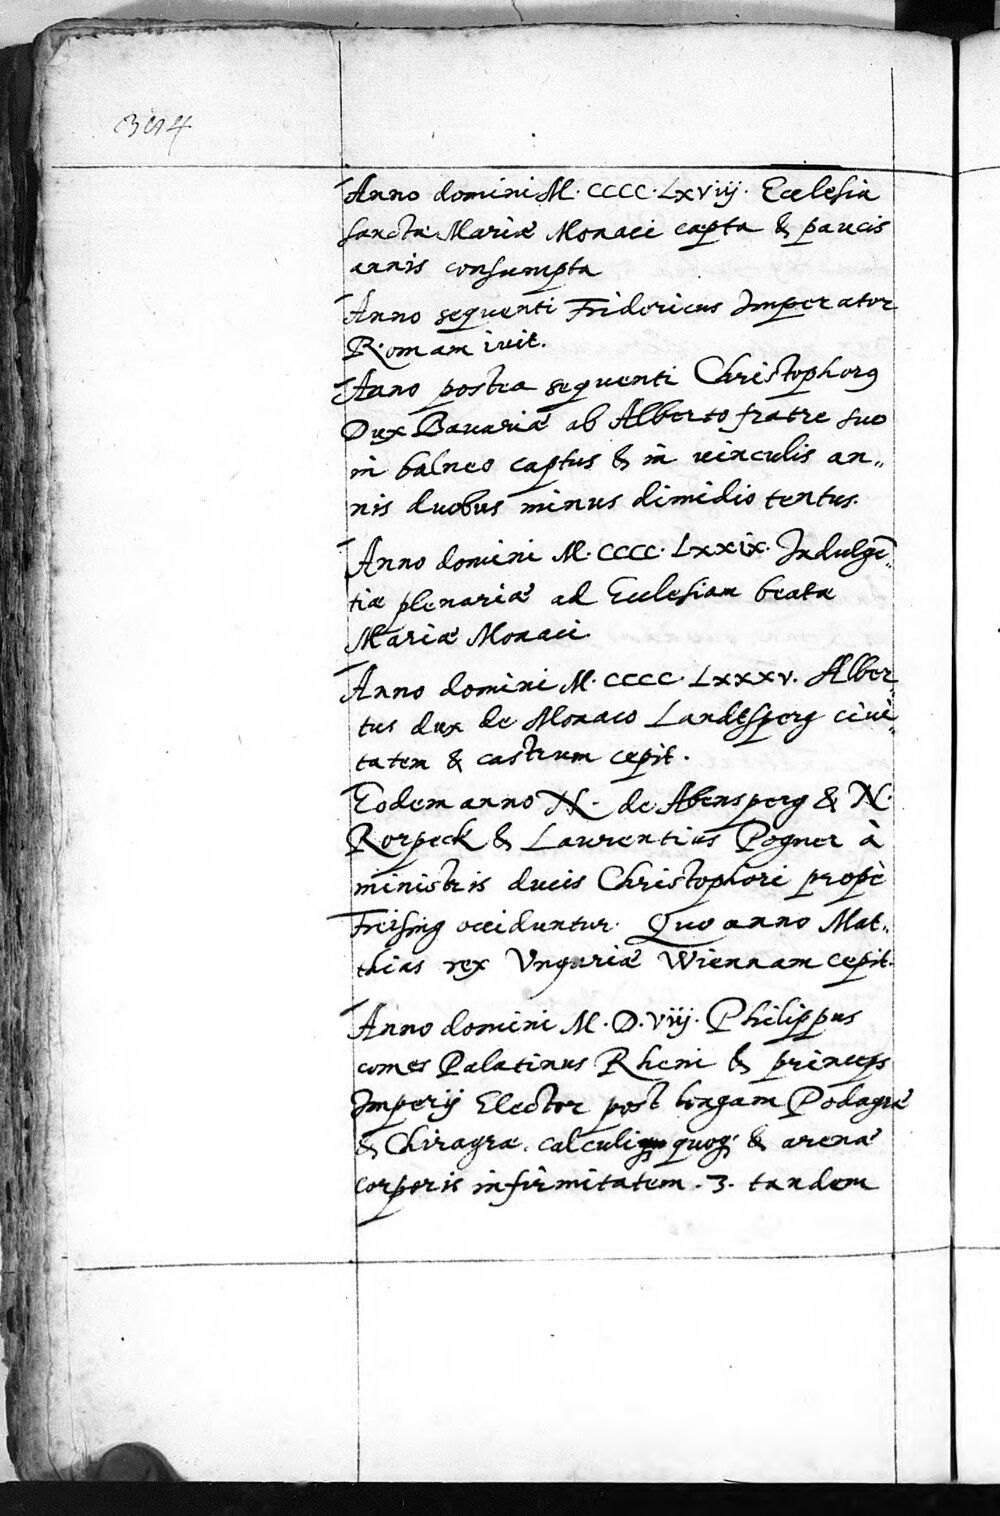 394
Anno domini M. CCCC. LXViij. Ecclesia
sanctæ Mariæ Monaci capta & paucis
annis consumpta
Anno sequenti Fridericus Imperator
Romam ivit.
Anno postea sequenti Christophorꝰ
Dux Bavariæ ab Alberto fratre suo
in balneo captus & in vinculis an„
nis duobus minus dimidio tentus.
Anno domini M. CCCC. LXXIX. Indulgē„
tiæ plenariæ ad Ecclesiam beatæ
Mariæ Monaci
Anno domini M. CCCC. LXXXV. Alber„
tus dux de Monaco Landtsperg civi„
tatem & castrum cepit.
Eodem anno N. de Abensperg & N.
Rorpeck & Laurentius Pogner à
ministris ducis Christophori propè
Freising occiduntur. Quo anno Mat„
thias rex Ungariæ Wiennam cepit.
Anno domini M. D. Viij. Philippus
comes Palatinus Rheni & princeps
Imperij Elector post longam Podagræ
& Chiragræ, calculi quoqꝫ & arenæ
corporis infirmitatem. 3. tandem